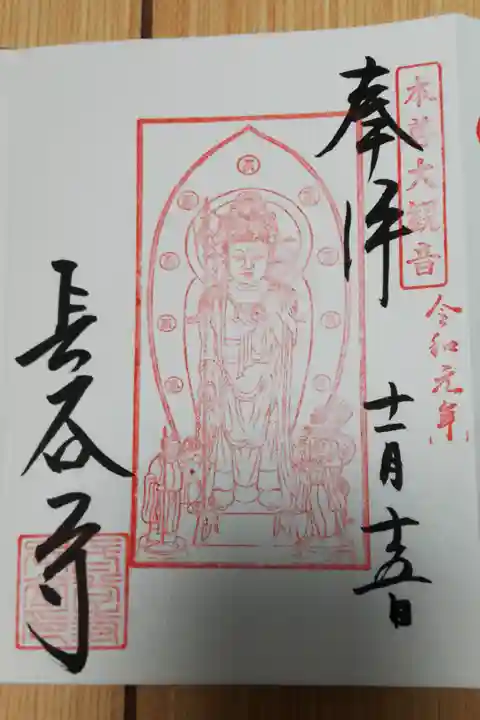 本尊大観音
令和元年
奉拝
十一月十五日
長谷寺